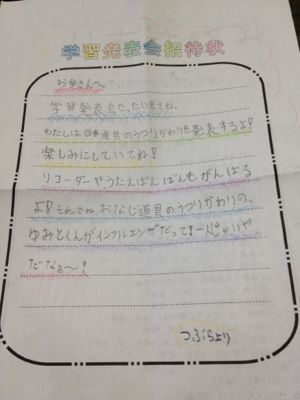 学習発表会招待状
お母さんへ
学習発表会ぜったい来てね。
わたしは 道具のうつりかわりを発表するよ!
楽しみにしていてね!
リコーダーやうたえばんばんもがんばる
よ!それでね、おなじ道具のうつりかわりの、
ゆみとくんがインフルエンザだって!一人じゃいや
だなぁ〜!
つぶらより